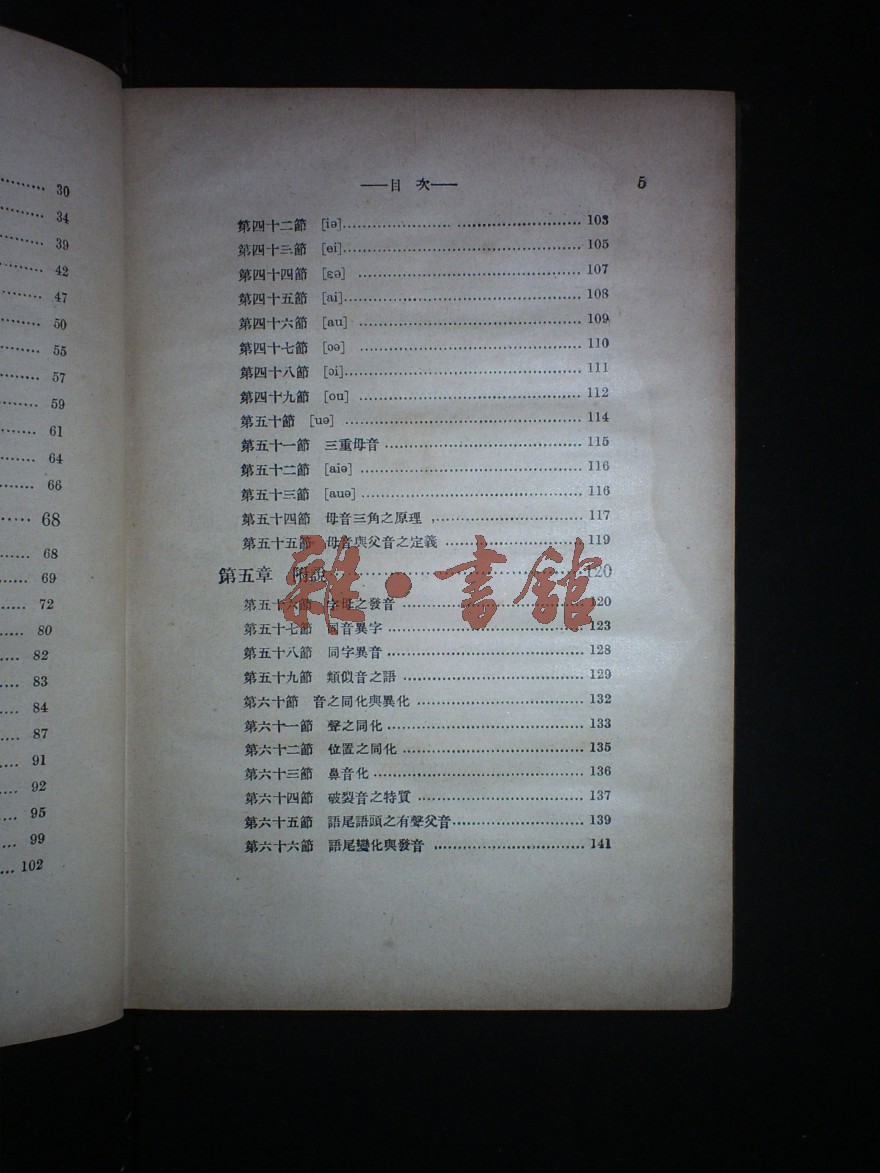 30
34
39
42
47
50
55
57
59
61
64
66
68
68
69
72
80
82
83
84
87
91
92
95
99
102
——目 次—— 5
第四十二節 [iə]........................................ 103
第四十三節 [ei]........................................ 105
第四十四節 [ɛə] ........................................ 107
第四十五節 [ai]........................................ 108
第四十六節 [au] ........................................ 109
第四十七節 [ɔə] ........................................ 110
第四十八節 [ɔi]........................................ 111
第四十九節 [ou] ........................................ 112
第五十節 [uə] ........................................ 114
第五十一節 三重母音........................................ 115
第五十二節 [aiə] ........................................ 116
第五十三節 [auə] ........................................ 116
第五十四節 母音三角之原理 ........................................ 117
第五十五節 母音與父音之定義 ........................................ 119
第五章 附說........................................ 120
第五十六節 字母之發音 ........................................ 120
第五十七節 同音異字........................................ 123
第五十八節 同字異音........................................ 128
第五十九節 類似音之語........................................ 129
第六十節 音之同化與異化 ........................................ 132
第六十一節 聲之同化........................................ 133
第六十二節 位置之同化........................................ 135
第六十三節 鼻音化........................................ 136
第六十四節 破裂音之特質 ........................................ 137
第六十五節 語尾語頭之有聲父音........................................ 139
第六十六節 語尾變化與發音 ........................................ 141
雜·書館